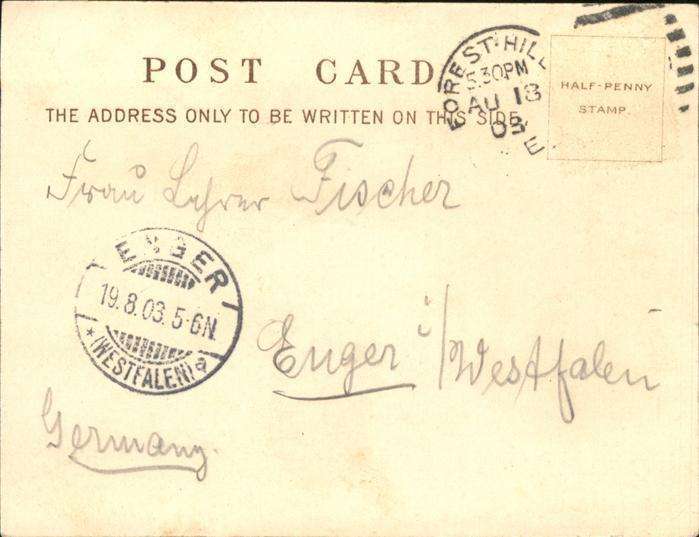 POST CARD
THE ADDRESS ONLY TO BE WRITTEN ON THIS SIDE
FOREST HILL
5.30PM
AU 18
03
S.E
HALF-PENNY
STAMP.
Frau Lehrer Fischer
ENGER
19.8.03.5-6N.
* (WESTFALEN) a
Enger i/Westfalen
Germany.